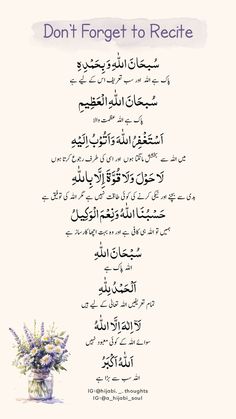 Don't Forget to Recite
سُبْحَانَ اللهِ وَبِحَمْدِهِ
پاک ہے اللہ اور سب تعریف اس کے لیے ہے
سُبْحَانَ اللهِ الْعَظِيْمِ
پاک ہے اللہ عظمت والا
اَسْتَغْفِرُ اللهَ وَاَتُوْبُ اِلَيْهِ
میں اللہ سے بخشش مانگتا ہوں اور اسی کی طرف رجوع کرتا ہوں
لَا حَوْلَ وَلَا قُوَّةَ اِلَّا بِاللهِ
بدی سے بچنے اور نیکی کرنے کی کوئی طاقت نہیں ہے مگر اللہ کی توفیق سے
حَسْبُنَا اللهُ وَنِعْمَ الْوَكِيْلُ
ہمیں تو اللہ ہی کافی ہے اور وہ بہت اچھا کارساز ہے
سُبْحَانَ اللهِ
اللہ پاک ہے
اَلْحَمْدُ لِلّٰهِ
تمام تعریفیں اللہ تعالٰی کے لیے ہیں
لَآ اِلٰهَ اِلَّا اللهُ
سوائے اللہ کے کوئی معبود نہیں
اَللهُ اَكْبَرُ
اللہ سب سے بڑا ہے
IG:@hijabi._. thoughts
IG:@a_hijabi_soul